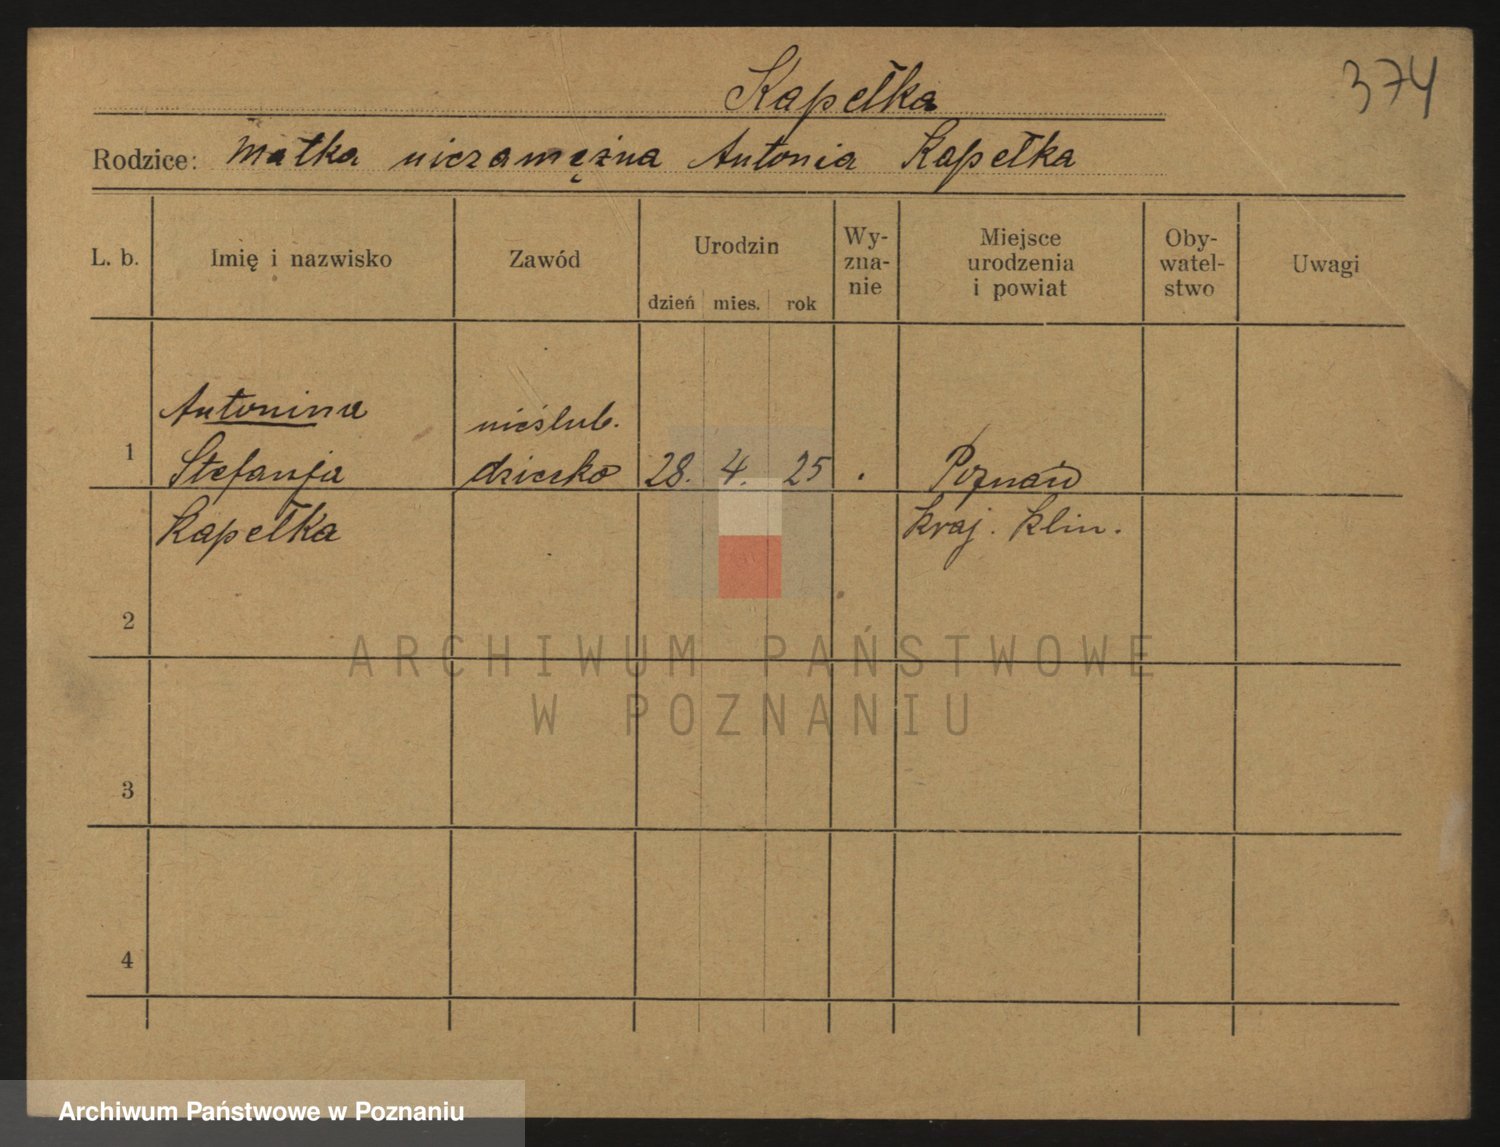 Kapełka
374
Rodzice: Matka niezamężna Antonia Kapełka
L. b.
Imię i nazwisko
Zawód
Urodzin
dzień mies. rok
Wy-
zna-
nie
Miejsce
urodzenia
i powiat
Oby-
watel-
stwo
Uwagi
1
Antonina
Stefanja
Kapełka
nieślub.
dziecko
28. 4. 25
Poznań
kraj. klin.
2
3
4
ARCHIWUM PAŃSTWOWE
W POZNANIU
Archiwum Państwowe w Poznaniu